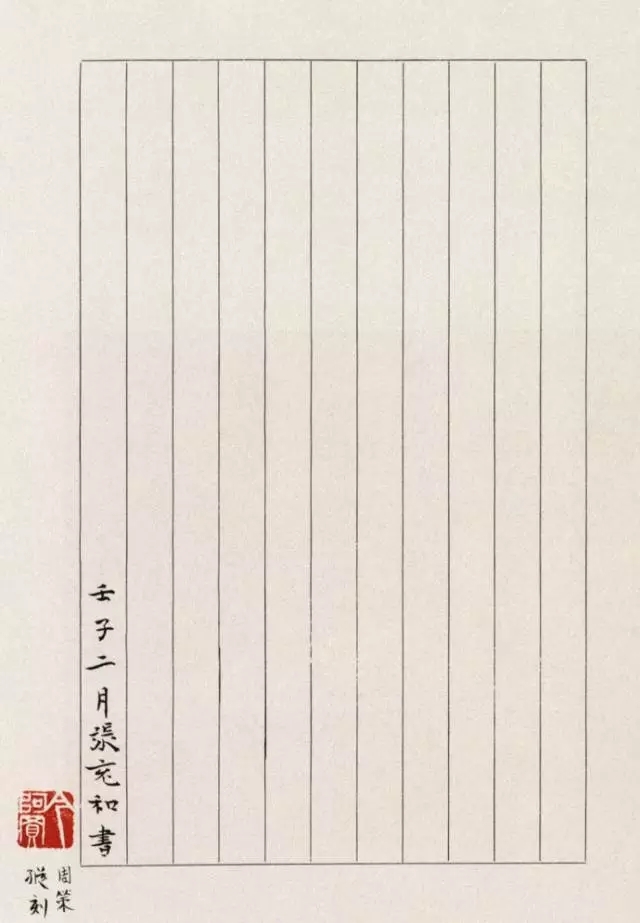 壬子二月張充和書
今阿買
周策
縱刻